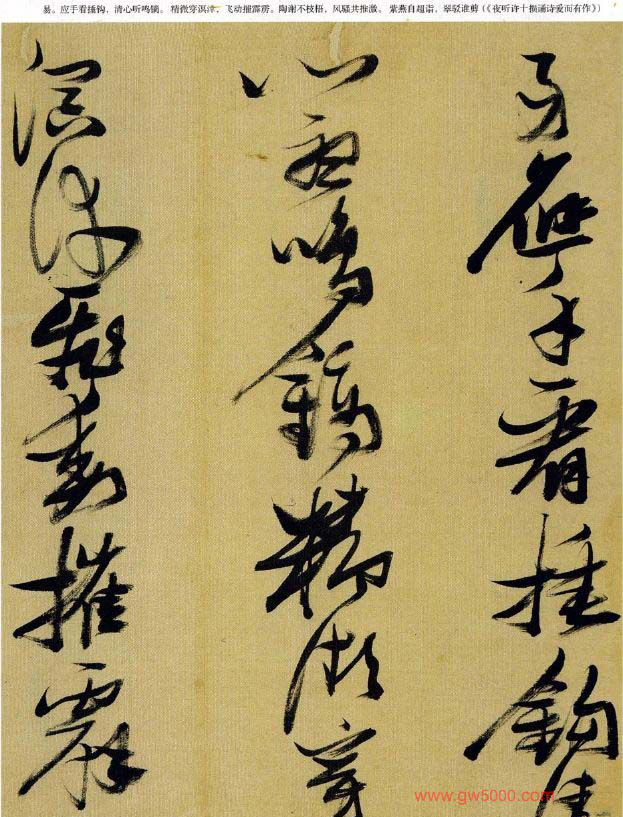 易。应手看捶钩，清心听鸣镝。 精微穿溟涬，飞动摧霹雳。陶谢不枝梧，风骚共推激。 紫燕自超诣，翠驳谁剪（《夜听许十损诵诗爱而有作》）
易應手看捶鉤清
心聽鳴鏑精微穿
溟涬飛動摧霹
www.gw5000.com